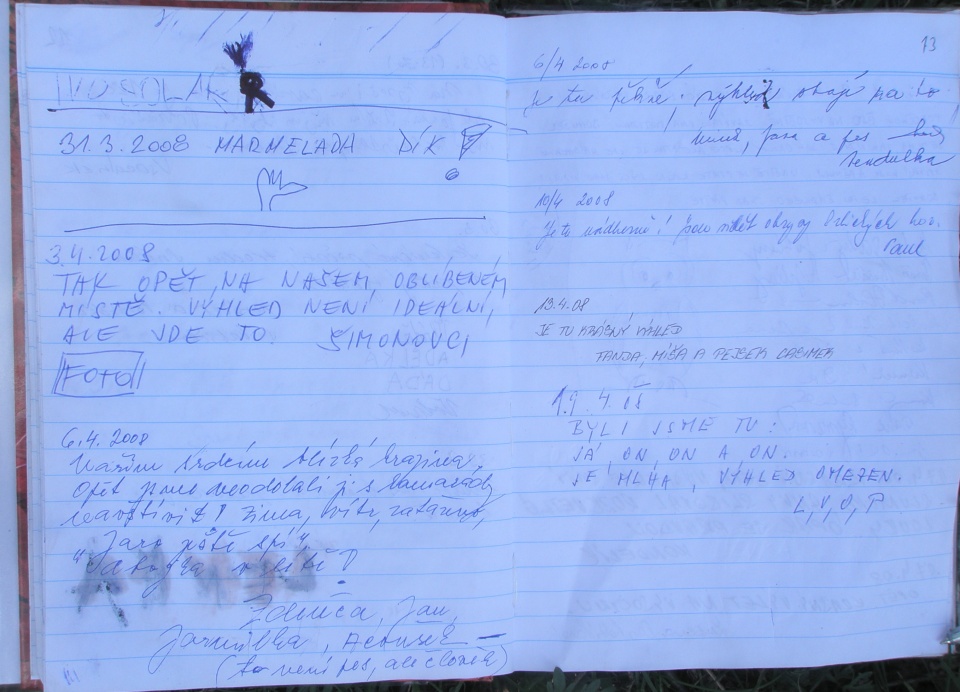 IVO SOLAŘ
31.3.2008 MARMELADA DÍK!
3.4.2008
TAK OPĚT NA NAŠEM OBLÍBENÉM
MÍSTĚ. VÝHLED NENÍ IDEÁLNÍ,
ALE JDE TO. ŠIMONOVCI
FOTO!
6.4.2008
Našim srdcím blízká krajina,
opět jsme neodolali ji s kamarády
navštívit! Zima, vítr, zataženo,
"Jaro ještě spí",
Zdenča, Jan,
Jarmilka,
(to není pes, ale člověk)
13
6/4 2008
Je tu pěkně, výhled stojí za to
a pes
10/4 2008
Je to nádherné!
Paul
13.4.08
JE TU KRÁSNÝ VÝHLED
TANJA, MÍŠA A PEJSEK
19.4.08
BYLI JSME TU:
JÁ, ON, ON A ON.
JE MLHA, VÝHLED OMEZEN.
L, V, O, P